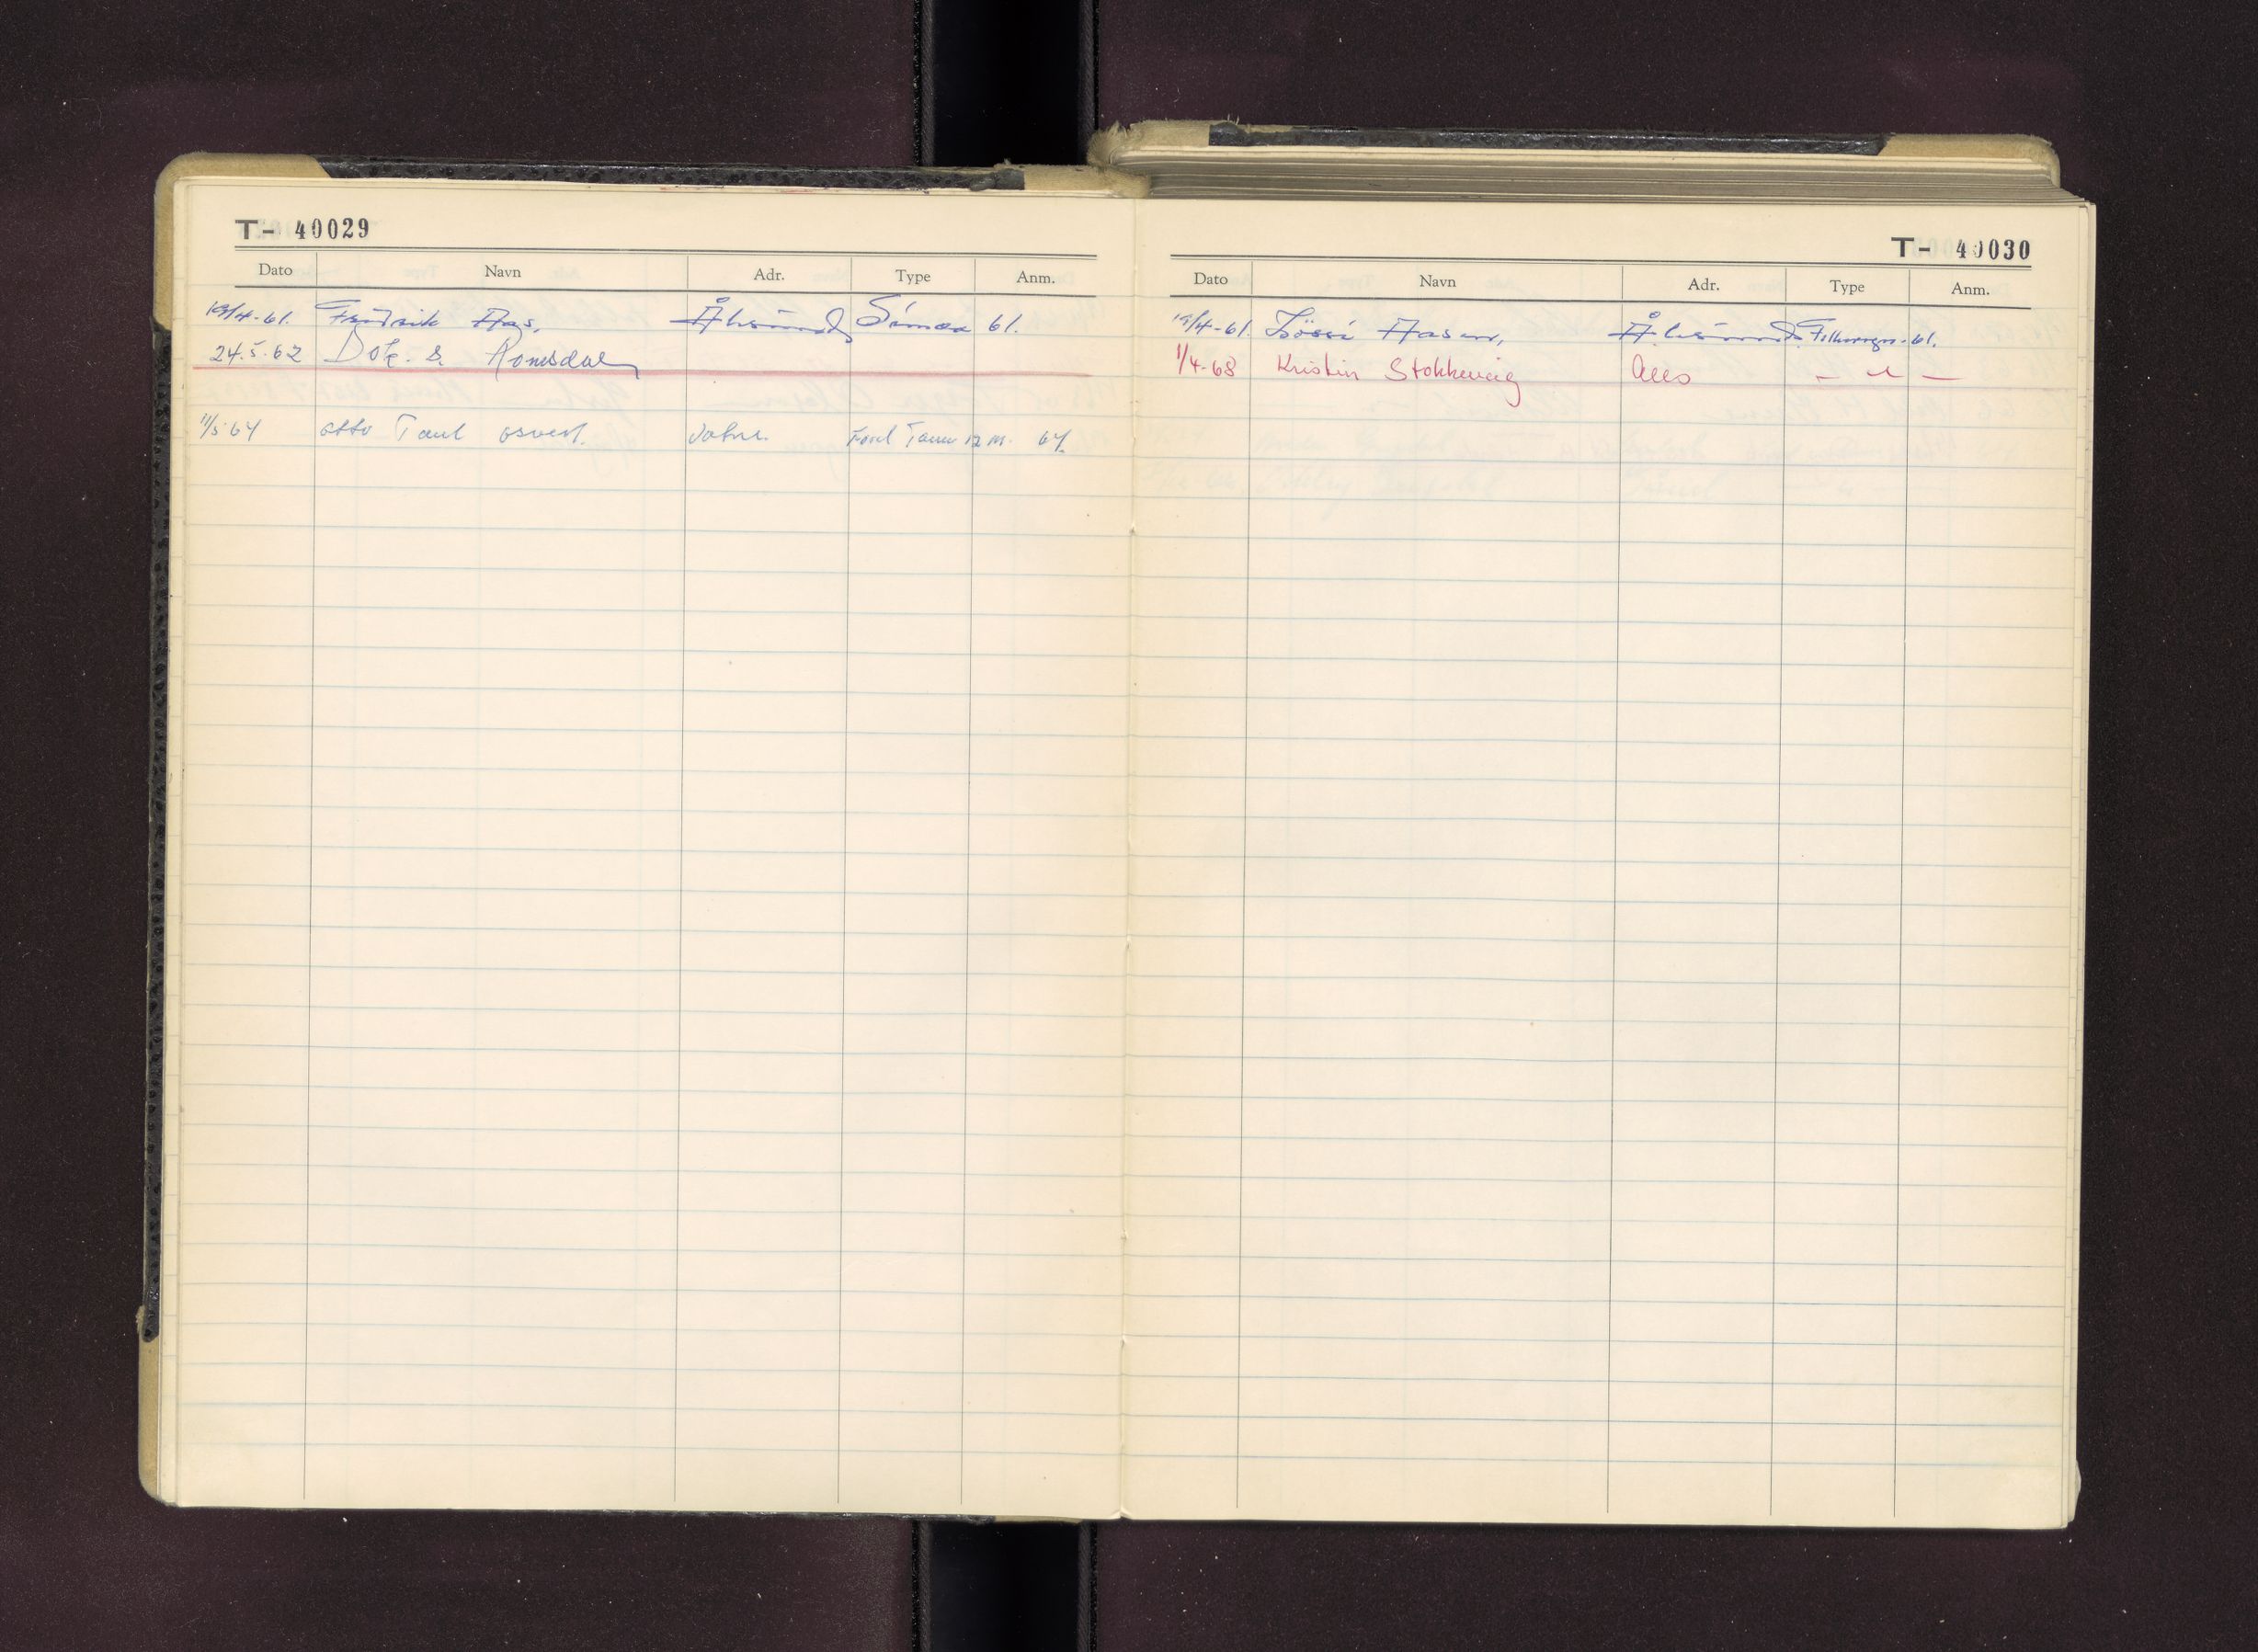 T- 40029
Dato Navn Adr. Type Anm.
19/4-61. Fridrik Aas, Ålesund Simca 61.
24.5.62 Dok. s. Romsdal
11/5.64 Otto Paul Vatne. Ford Taunus 12 M. 64.
T- 40030
Dato Navn Adr. Type Anm.
19/4-61. Aasen, Ålesund, 61.
1/4-68 Kristin Stokkereig Ales — " —